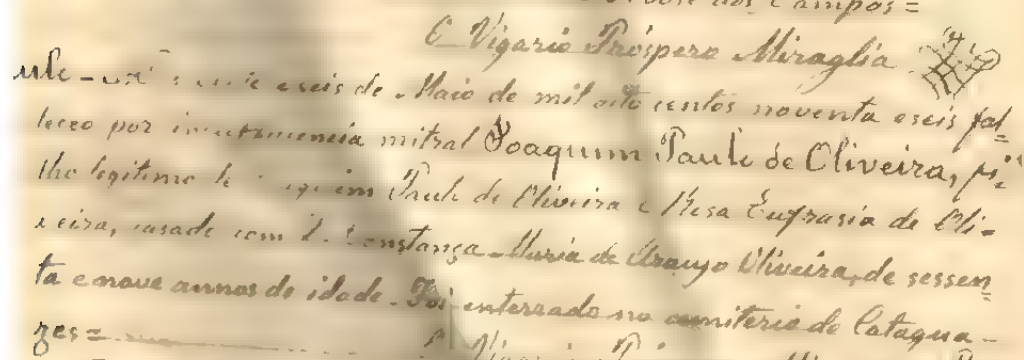 dos Campos =
O Vigario Próspero Miraglia
e seis de Maio de mil oito centos noventa e seis fal=
leceo por mitral Joaquim Paulo de Oliveira, fi=
lho legitimo de Paulo de Oliveira e Rosa Eufrasia de Oli-
veira, casado com D. Constança Maria de Araujo Oliveira, de sessen=
ta e nove annos de idade. Foi enterrado no cemiterio de Catagua-
zes =